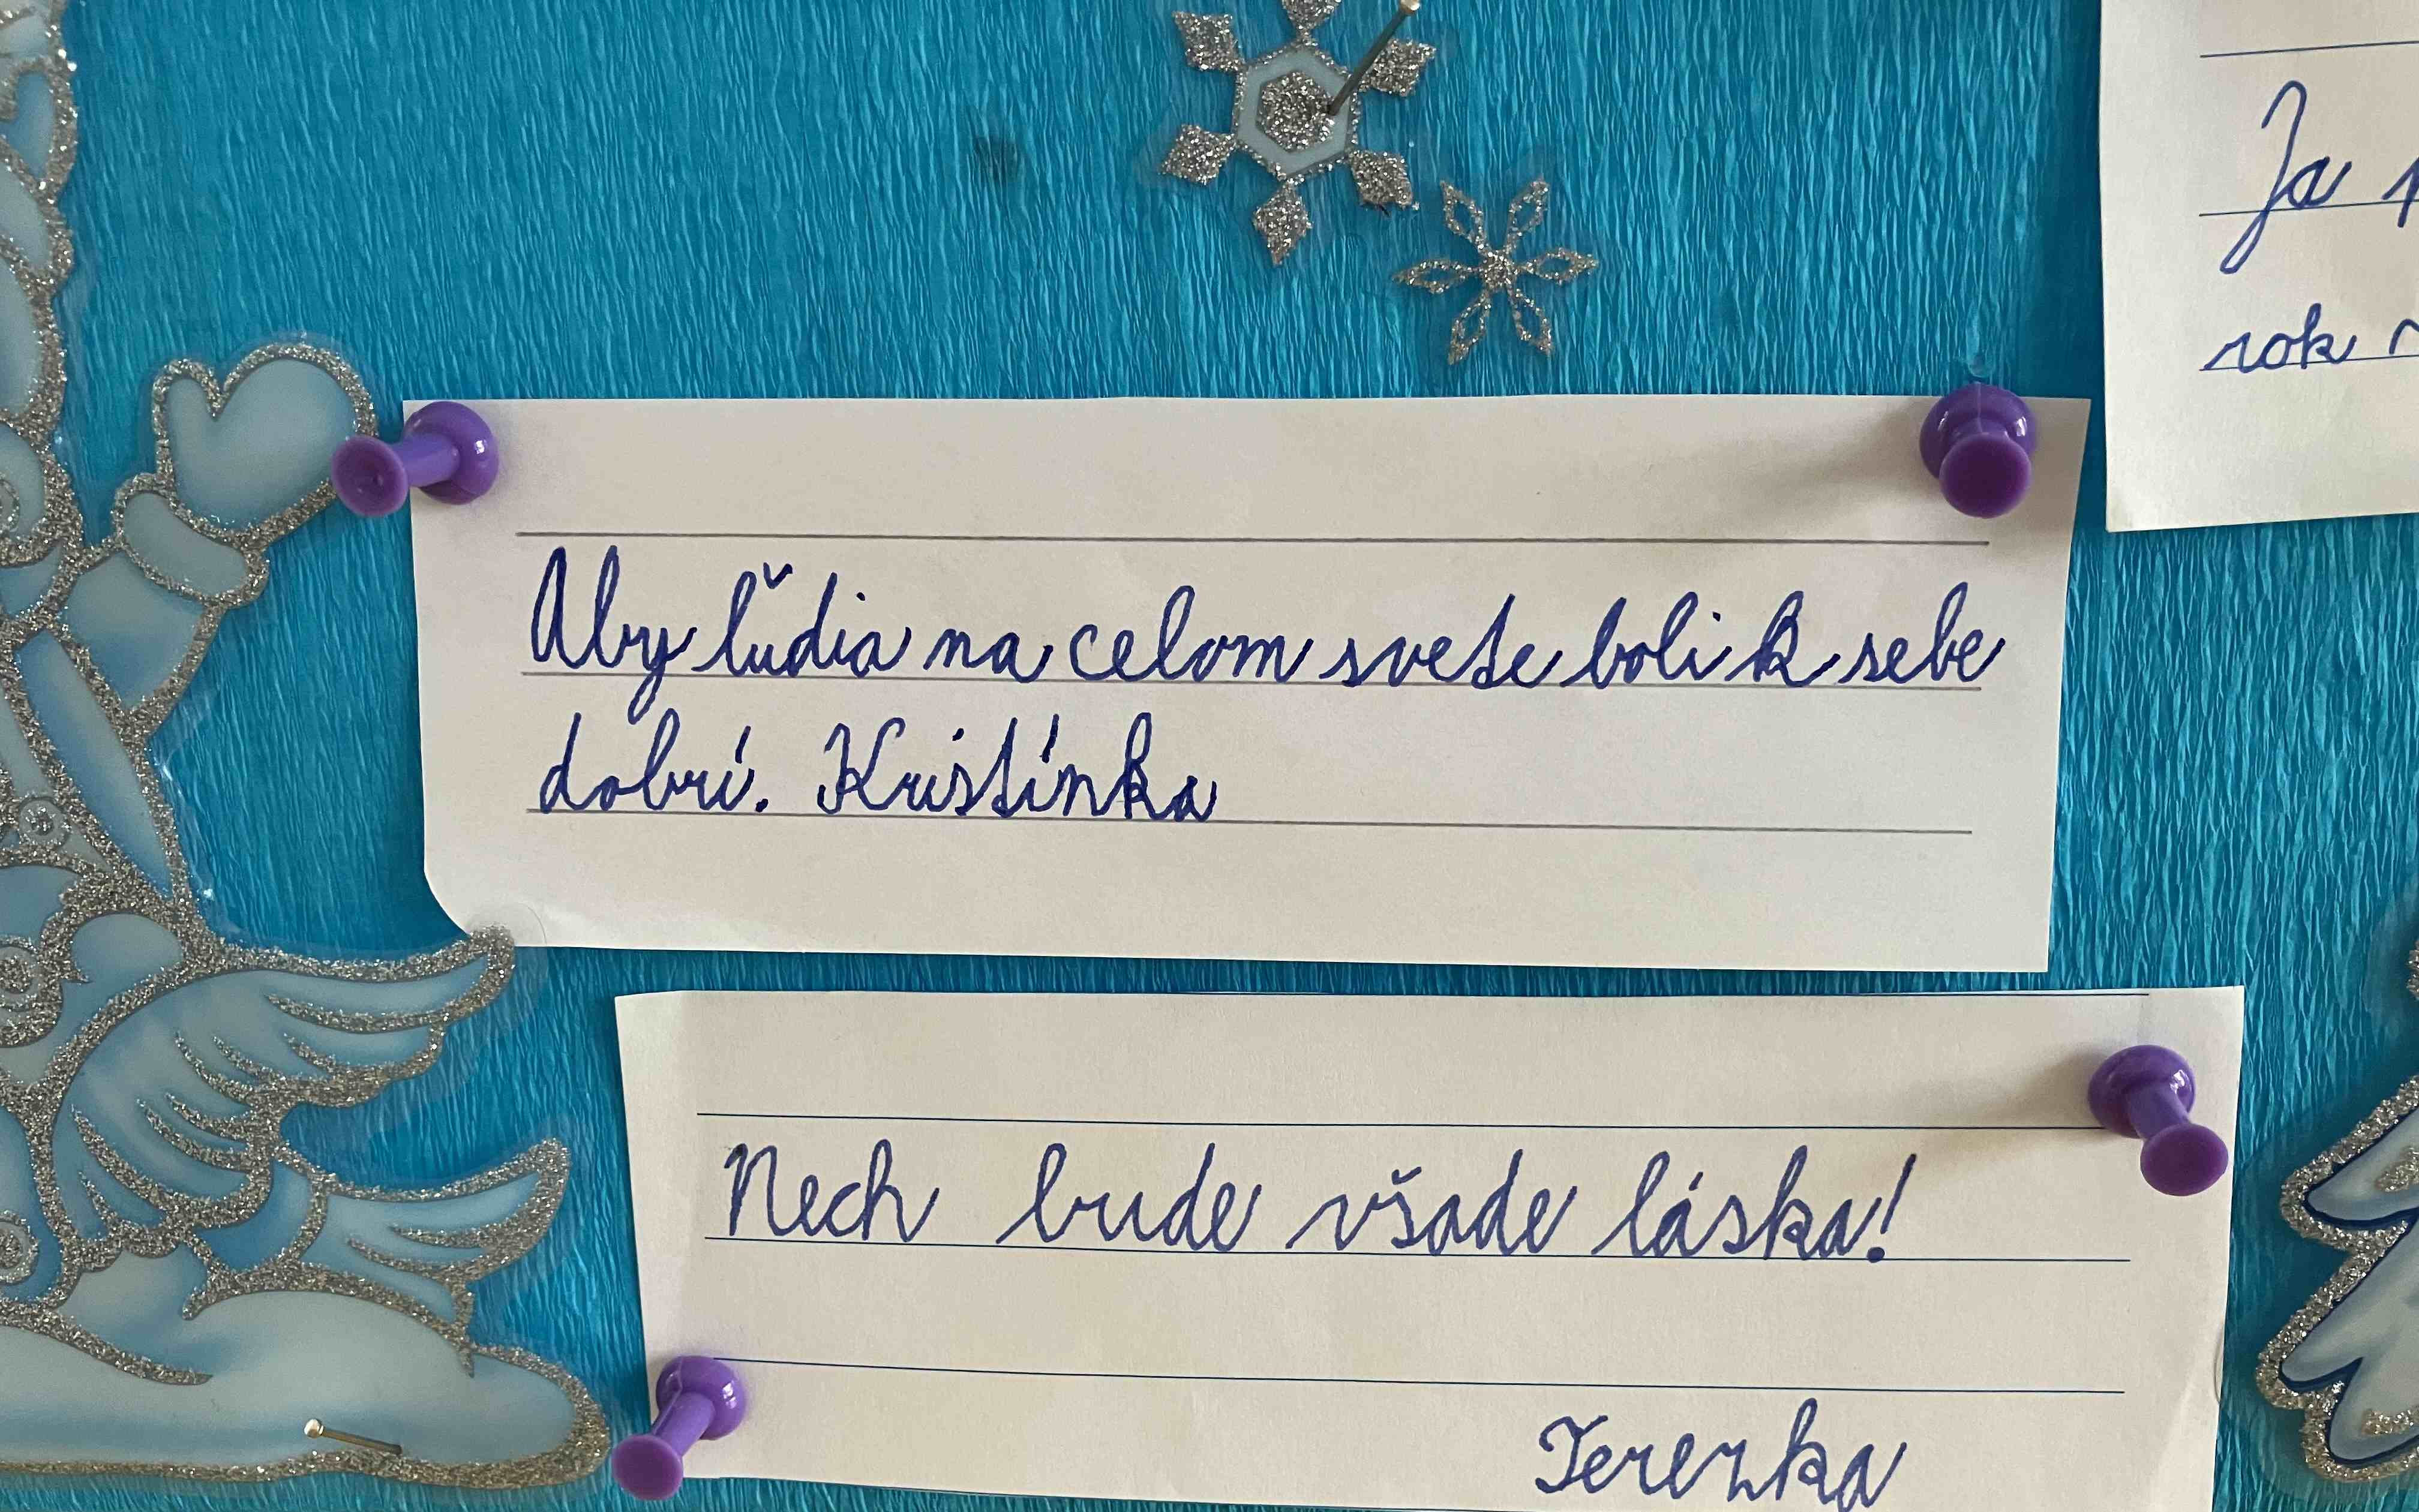 Aby ľudia na celom svete boli k sebe
dobrí. Kristínka
Nech bude všade láska!
Terezka
Ja
rok